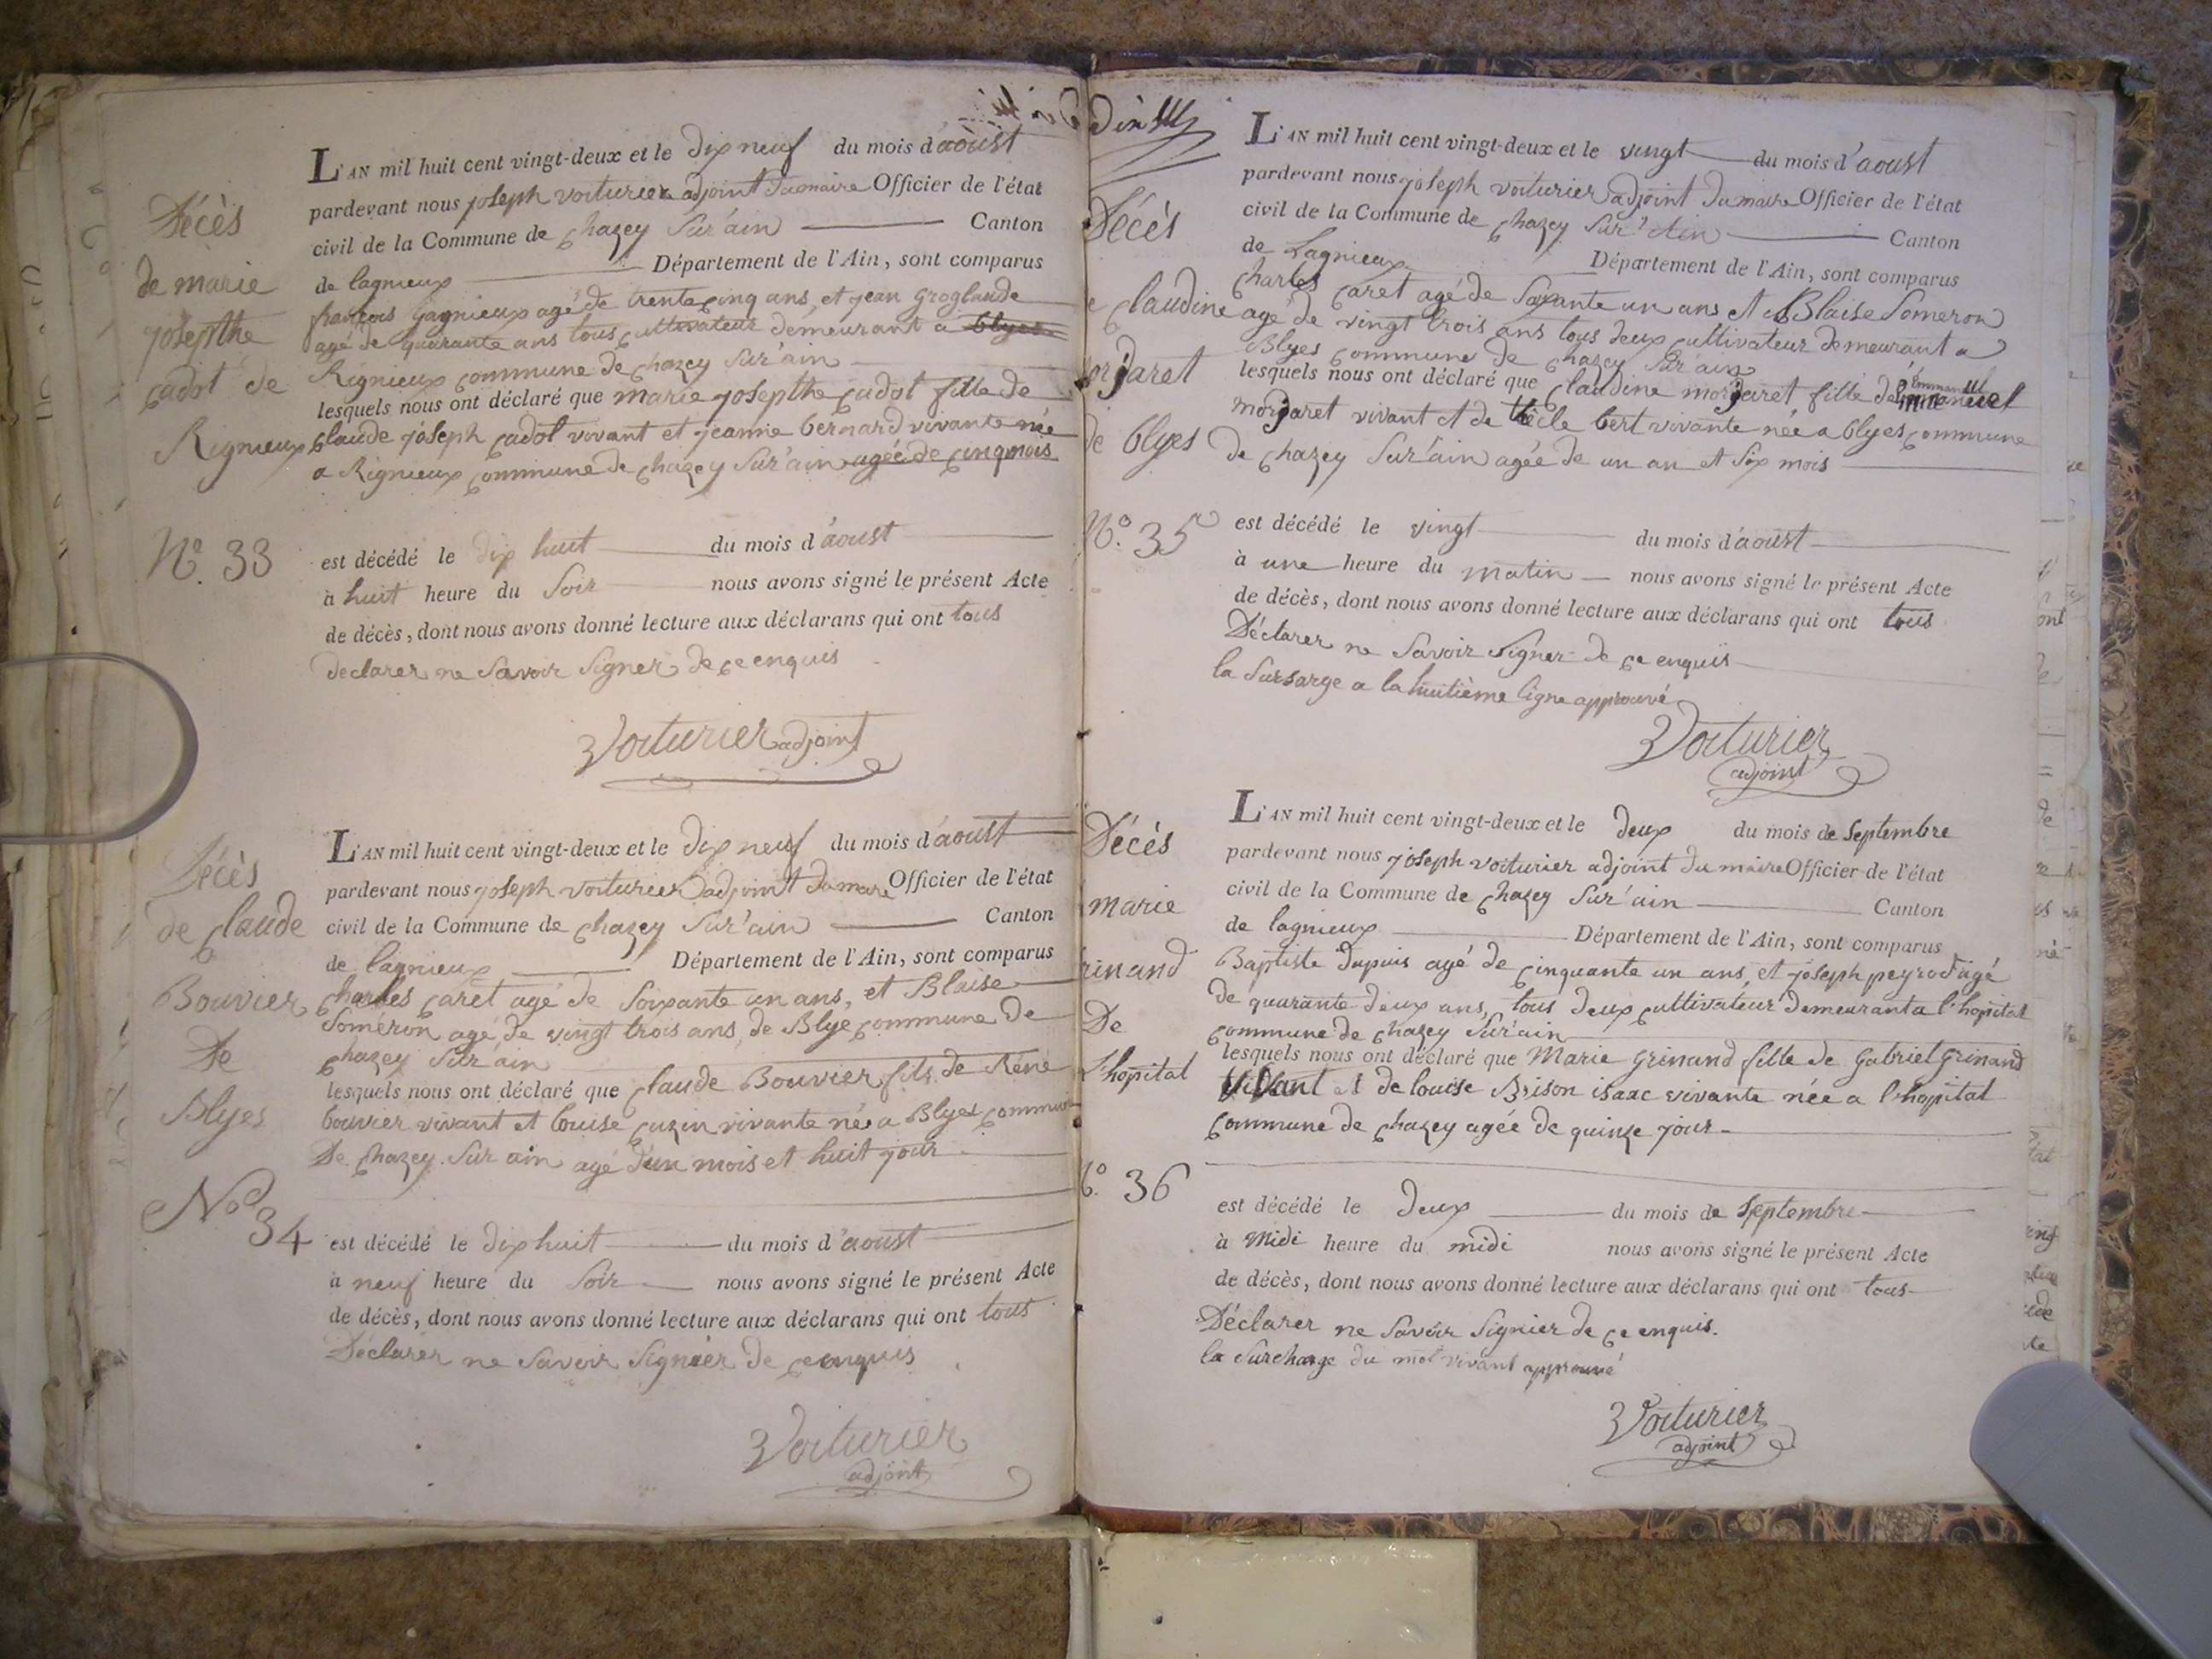 Décès
de marie
josepthe
cadot de
Rignieux
N.º 33
L'AN mil huit cent vingt-deux et le dix neuf du mois d'aoust
pardevant nous joseph voiturier adjoint du maire Officier de l'état
civil de la Commune de chazey sur'ain Canton
de lagnieux Département de l'Ain, sont comparus
françois Gagnieux agé de trente cinq ans, et jean Groglande
agé de quarante ans tous cultivateur demeurant a blyes
Rignieux commune de chazey sur'ain
lesquels nous ont déclaré que marie josepthe cadot fille de
claude joseph cadot vivant et jeanne bernard vivante née
a Rignieux commune de chazey sur'ain agée de cinq mois
est décédé le dix huit du mois d'aoust
à huit heure du soir nous avons signé le présent Acte
de décès, dont nous avons donné lecture aux déclarans qui ont tous
declarer ne savoir signer de ce enquis
Voiturier adjoint
Décès
de claude
Bouvier
De
Blyes
No 34
L'AN mil huit cent vingt-deux et le dix neuf du mois d'aoust
pardevant nous joseph voiturier adjoint du maire Officier de l'état
civil de la Commune de chazey sur'ain Canton
de lagnieux Département de l'Ain, sont comparus
charles caret agé de soixante un ans, et Blaise
Someron agé de vingt trois ans, de Blye commune de
chazey sur'ain
lesquels nous ont déclaré que claude Bouvier fils de Réné
bouvier vivant et louise cuzin vivante né a Blyes commune
De chazey sur ain agé d'un mois et huit jour
est décédé le dix huit du mois d'aoust
à neuf heure du soir nous avons signé le présent Acte
de décès, dont nous avons donné lecture aux déclarans qui ont tous
Déclarer ne savoir signier de ce enquis
Voiturier
adjoint
Décès
claudine
morjaret
de blyes
N.º 35
L'AN mil huit cent vingt-deux et le vingt du mois d'aoust
pardevant nous joseph voiturier adjoint du maire Officier de l'état
civil de la Commune de chazey sur'Ain Canton
de Lagnieux Département de l'Ain, sont comparus
charles caret agé de soixante un ans et Blaise Someron
agé de vingt trois ans tous deux cultivateur demeurant a
Blyes commune de chazey sur'ain
lesquels nous ont déclaré que claudine morjaret fille de emmanuel
morjaret vivant et de thècle bert vivante née a blyes commune
de chazey sur'ain agée de un an et six mois
est décédé le vingt du mois d'aoust
à une heure du matin nous avons signé le présent Acte
de décès, dont nous avons donné lecture aux déclarans qui ont tous
Déclarer ne savoir signer de ce enquis
la sursarge a la huitième ligne approuvé
Voiturier
adjoint
Décès
marie
rinand
De
L'hopital
No. 36
L'AN mil huit cent vingt-deux et le deux du mois de septembre
pardevant nous joseph voiturier adjoint du maire Officier de l'état
civil de la Commune de chazey sur'ain Canton
de lagnieux Département de l'Ain, sont comparus
Baptiste Dupuis agé de cinquante un ans, et joseph peyrod agé
de quarante deux ans, tous deux cultivateur demeurant a l'hopital
commune de chazey sur'ain
lesquels nous ont déclaré que Marie Grinand fille de Gabriel Grinand
vivant et de louise Brison isaac vivante née a l'hopital
commune de chazey agée de quinze jour
est décédé le deux du mois de septembre
à midi heure du midi nous avons signé le présent Acte
de décès, dont nous avons donné lecture aux déclarans qui ont tous
Déclarer ne savoir signier de ce enquis.
la surcharge du mot vivant approuvé
Voiturier
adjoint